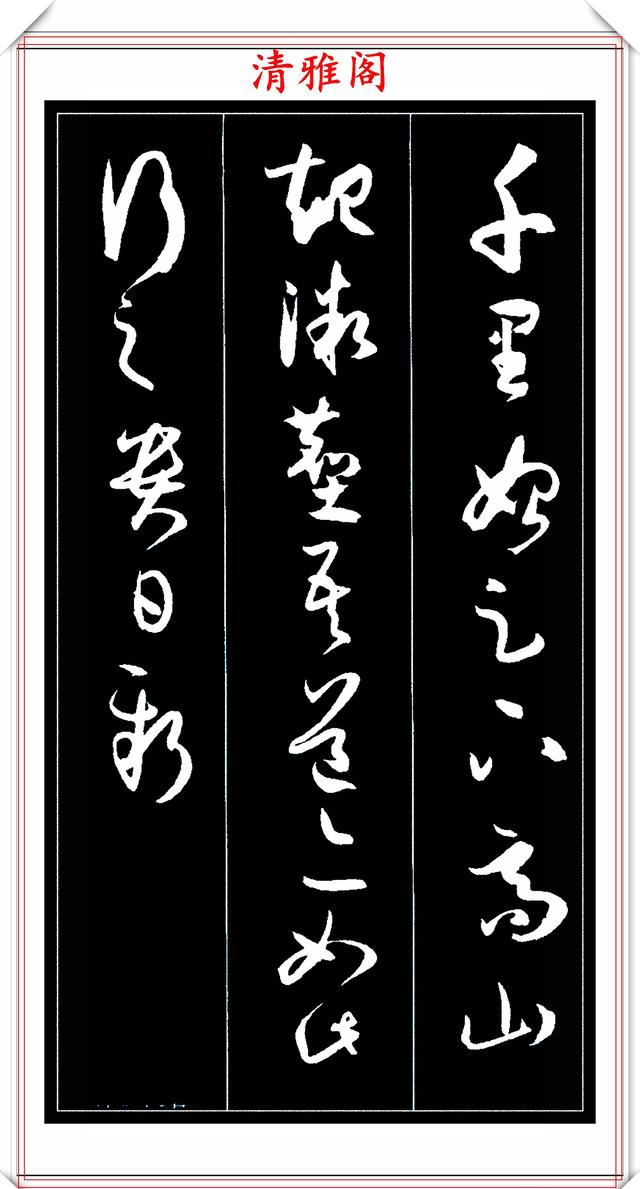 清雅阁
千里始足下高山
起微塵吾道亦如此
行之貴日新